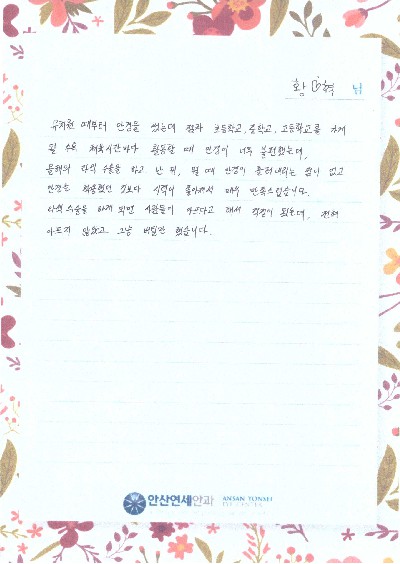 황 혁 님
유치원 때부터 안경을 썼는데 점차 초등학교, 중학교, 고등학교를 가게
될 수록 체육시간마다 활동할 때 안경이 너무 불편했는데,
라식 수술을 하고 난 뒤, 뛸 때 안경이 흘러내리는 일이 없고
안경을 착용했던 것보다 시력이 좋아져서 매우 만족스럽습니다.
라식수술을 하게 되면 사람들이 아프다고 해서 걱정이 됐는데, 전혀
아프지 않았고 그냥 뻐근만 했습니다.
안산연세안과 ANSAN YONSEI
EYE CENTER